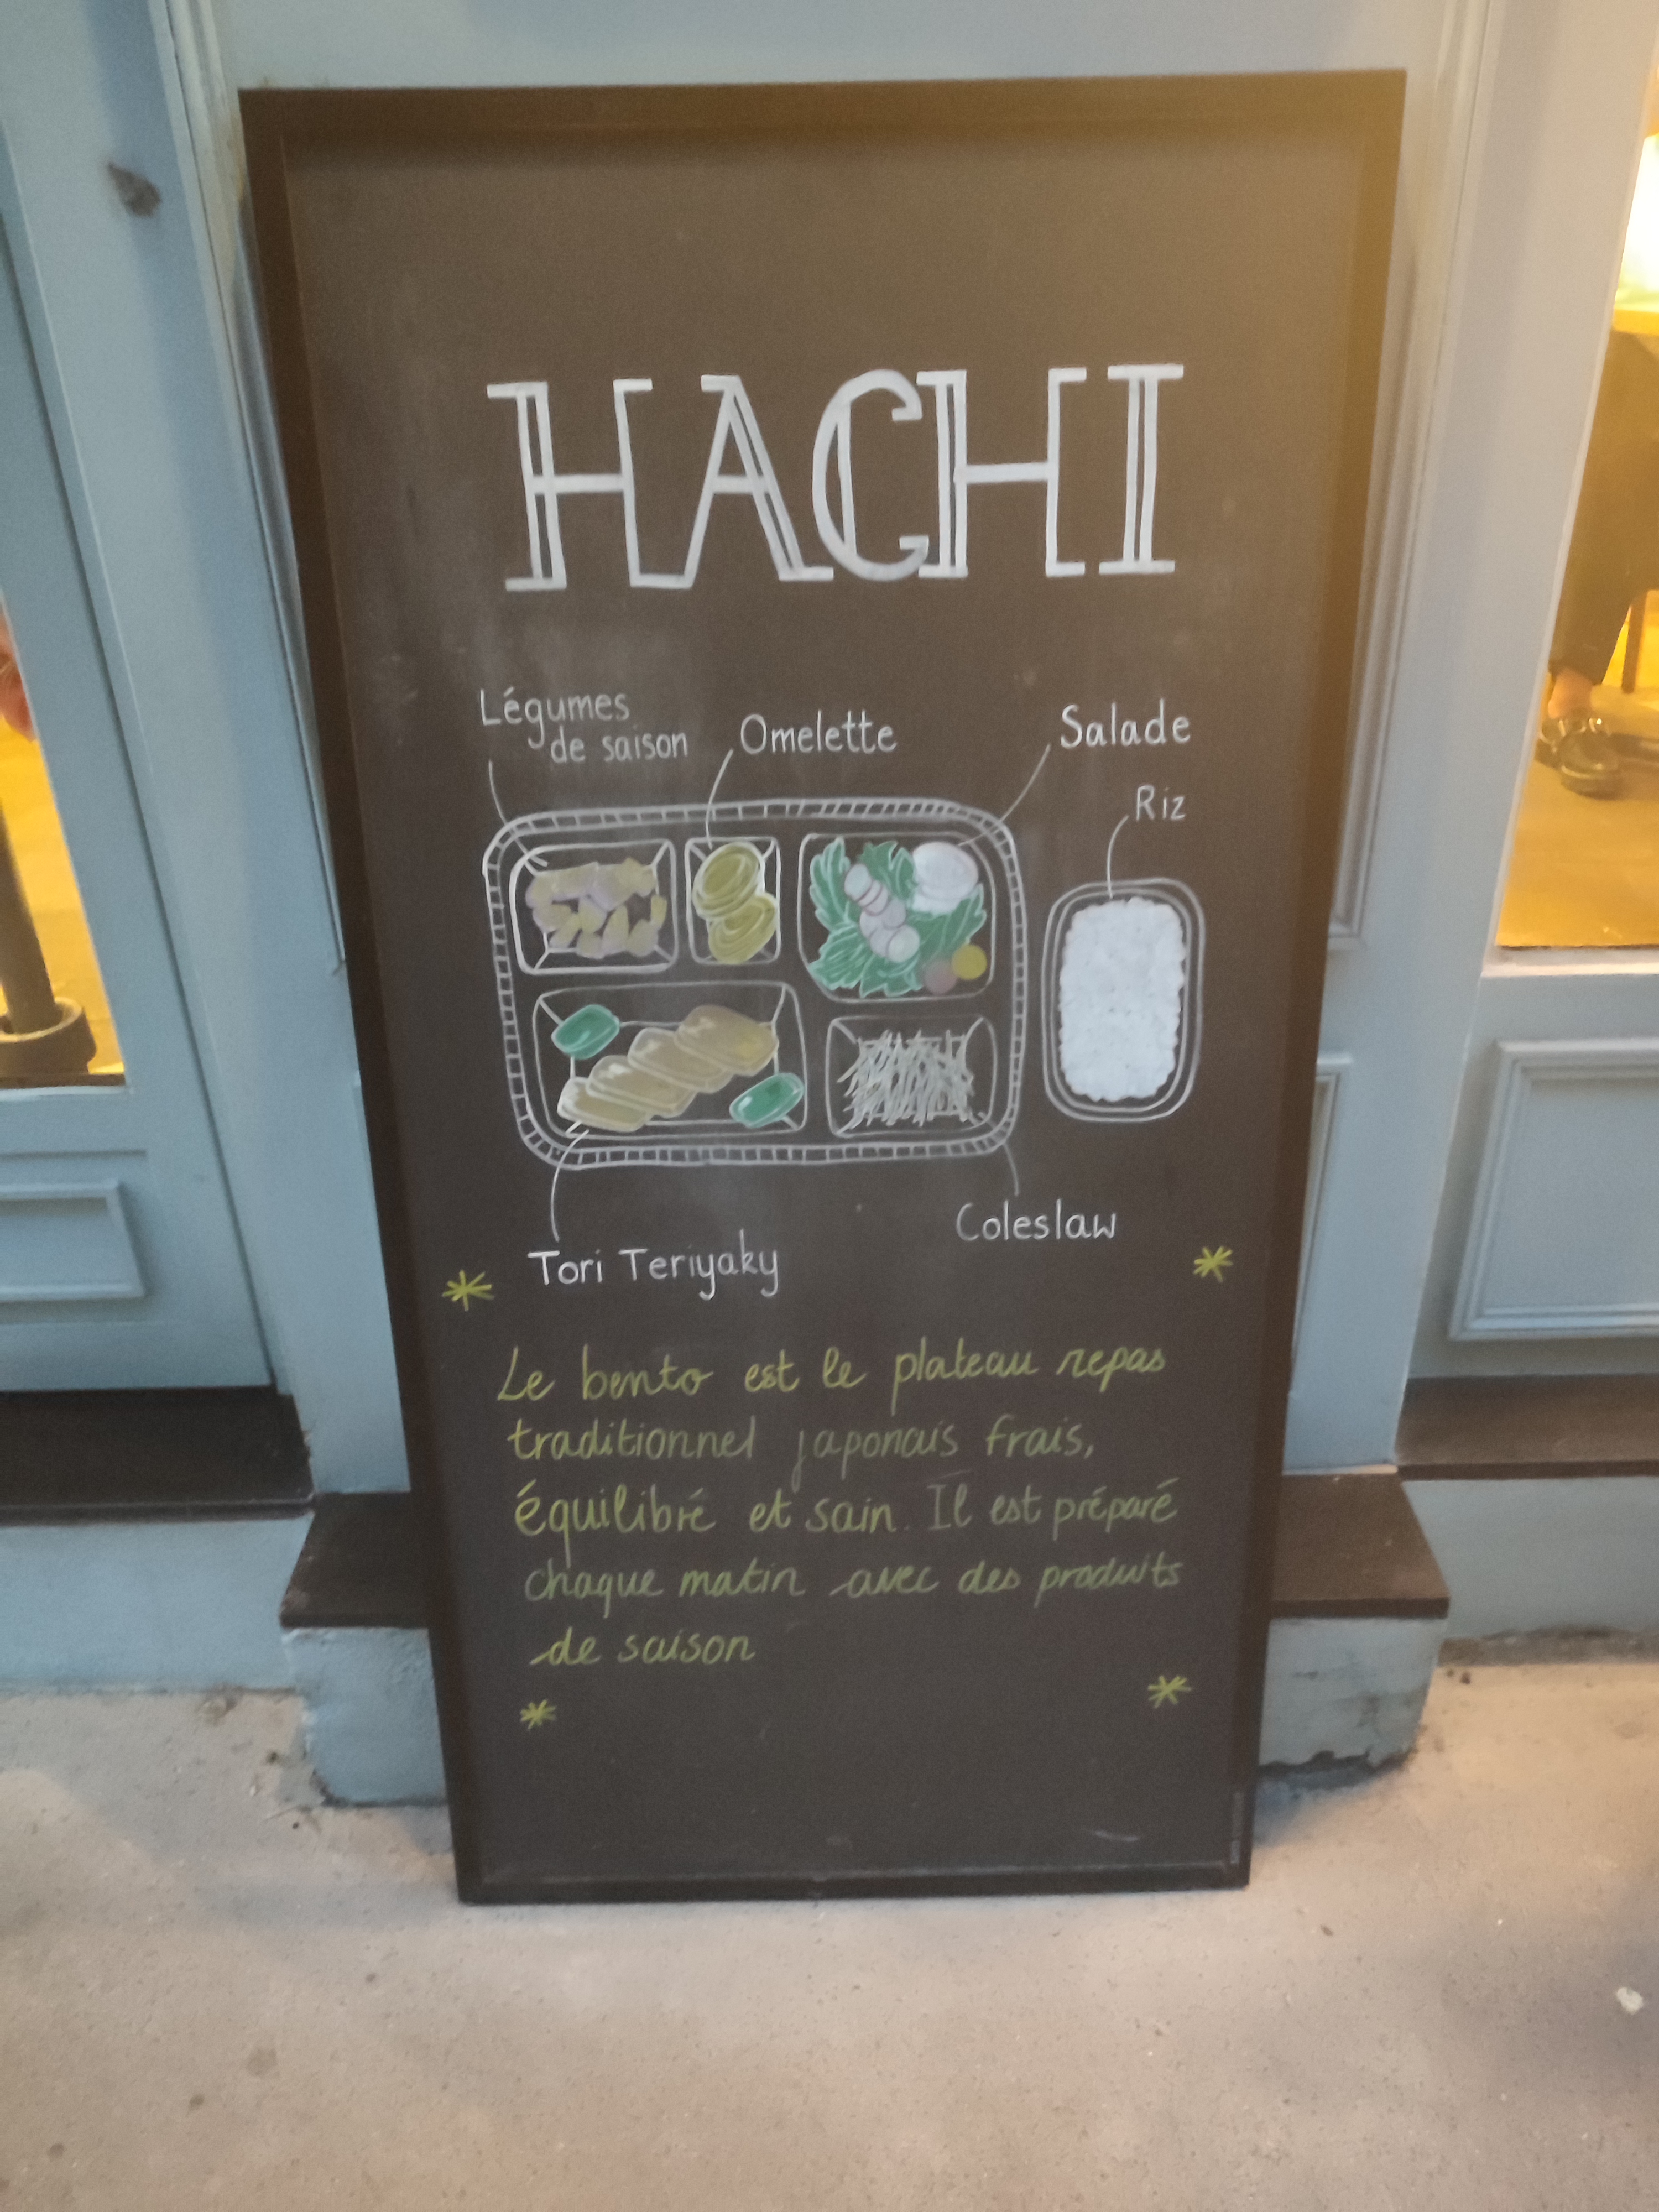 HACHI
Légumes
de saison
Omelette
Salade
Riz
Coleslaw
Tori Teriyaky
Le bento est le plateau repas
traditionnel japonais frais,
équilibré et sain. Il est préparé
chaque matin avec des produits
de saison